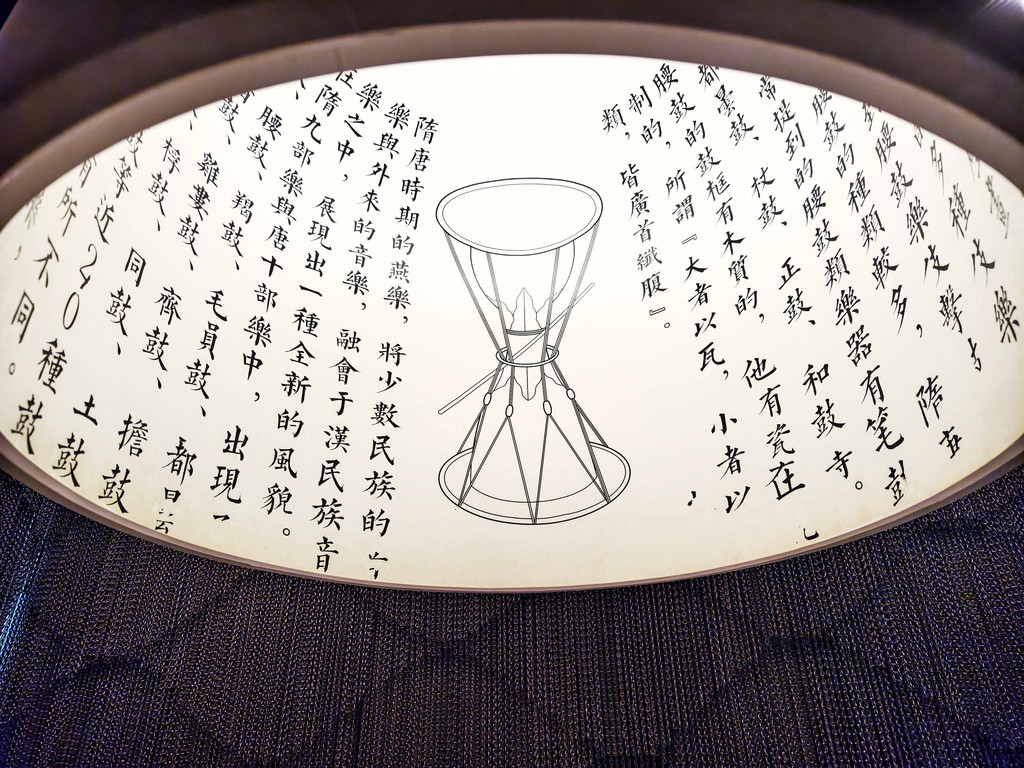 腰鼓樂皮擊
腰鼓的種類較多，隋
常提到的腰鼓類樂器有
都曇鼓、杖鼓、正鼓、和鼓寺。
腰鼓的鼓框有木質的，他有瓷在
制的，所謂『大者以瓦，小者以
類，皆廣首纖腹』。
隋唐時期的燕樂，將少數民族的
樂與外來的音樂，融會于漢民族音
樂之中，展現出一種全新的風貌。
在隋九部樂與唐十部樂中，出現一
腰鼓、羯鼓、毛員鼓、都
鼓、雞婁鼓、齊鼓、擔鼓
桴鼓、同鼓、土鼓
鼓等近20種鼓
所不同。